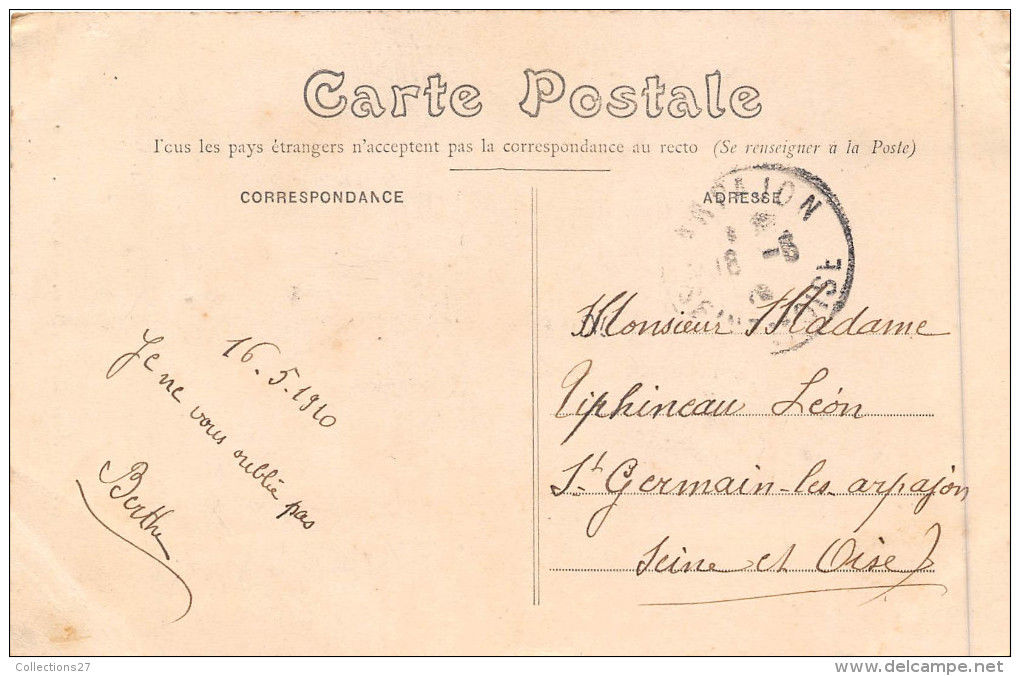 Carte Postale
Tous les pays étrangers n'acceptent pas la correspondance au recto (Se renseigner à la Poste)
CORRESPONDANCE
ADRESSE
ARPAJON
18
OISE
16.5.1910
Je ne vous oublie pas
Berthe
Monsieur Madame
Tiphineau Léon
St Germain-les-arpajon
Seine et Oise
Collections27
www.delcampe.net